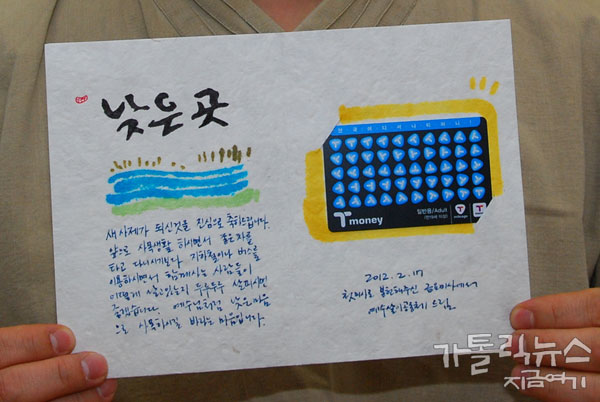 낮은 곳
새 사제가 되신것을 진심으로 축하드립니다.
앞으로 사목생활 하시면서
타고 다니시기 지하철이나 버스를
이용하시면서 함께사는 사람들이
어떻게 살고있는지 두루두루 살피시면
좋겠습니다. 예수님처럼 낮은마음
으로 사목하시길 바라는 마음입니다.
T money
일반용/Adult
2012. 2. 17
첫미사로 봉헌해주신
예수살이공동체 드림
가톨릭뉴스
지금여기